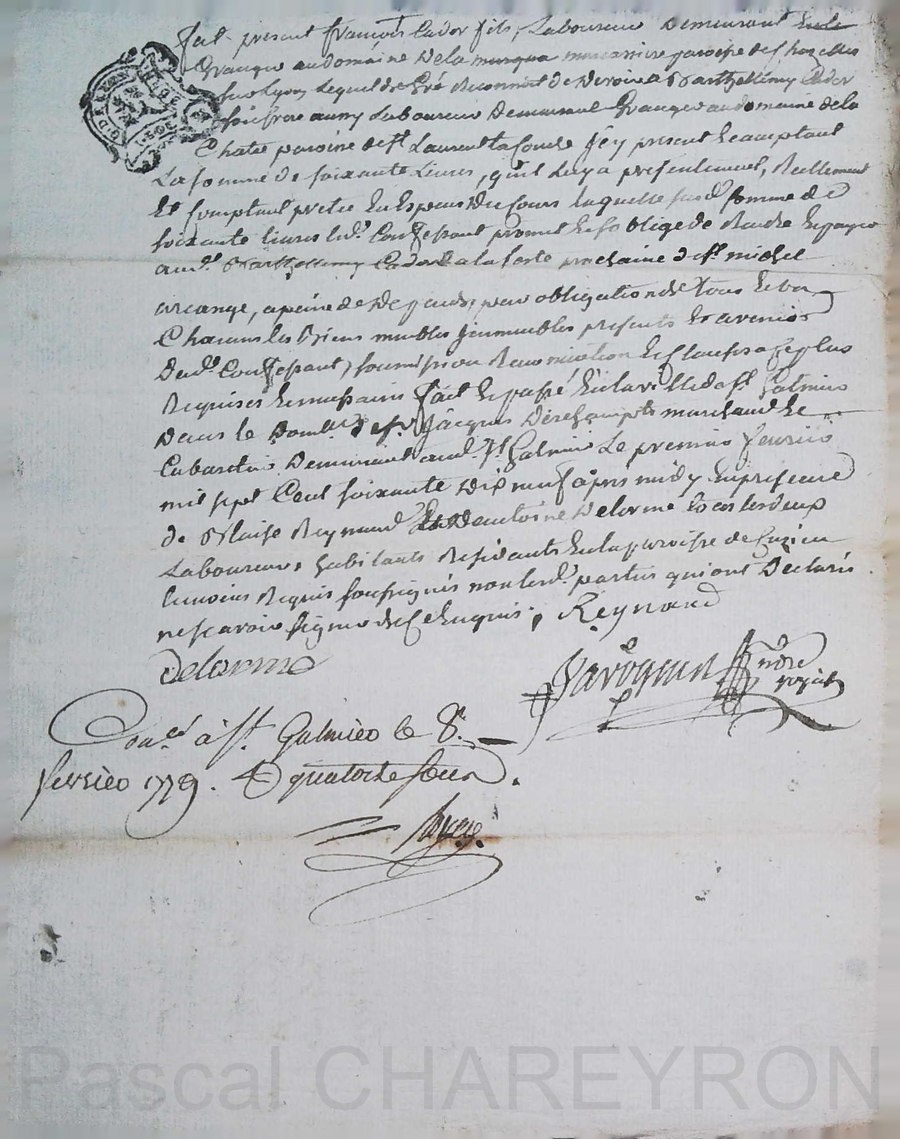 fut present françois Cador fils, Laboureur Demeurant
Granger au domaine De la parroisse de Chazelles
sur Lyon Lequel de gré Reconnoit devoir a Barthellemy Cador
son frere aussy Laboureur Demeurant Granger au domaine de la
paroisse de St Laurent la Conche Jcy present Et acceptant
La somme de soixante Livres, qu'il Luy a presentement, Reellement
Et Comptant prêté En Espece du Cours laquelle susd. somme de
soixante livres led. Confessant promet Et s'oblige de Rendre Et payer
aud. Barthellemy Cador a la feste prochaine de St michel
arcange, a peine de De par obligation de tous Et un
Chacuns les Biens meubles Jmmeubles presents Et avenirs
Dud. Confessant, soumission Renonciation Et Clauses
Requises Et necessaires fait Et passé En la ville de St Galmier
Dans le Domle. de sr. Jacques Deschamps marchand Et
Cabaretier Demeurant aud. St Galmier Le premier fevrier
mil sept Cent soixante Dix neuf après midy En presence
de Blaise Reynaud Et D'antoine Delorme tous les deux
Laboureurs habitants Residants En la paroisse de Cuzieu
temoins Requis soussignés non lesd. parties qui ont Déclaré
ne scavoir signer de ce Enquis. Reynaud
delorme
nore
royal
Con.lé à St. Galmier le 8.
fevrier 1779. R quatorze sous.
Pascal CHAREYRON